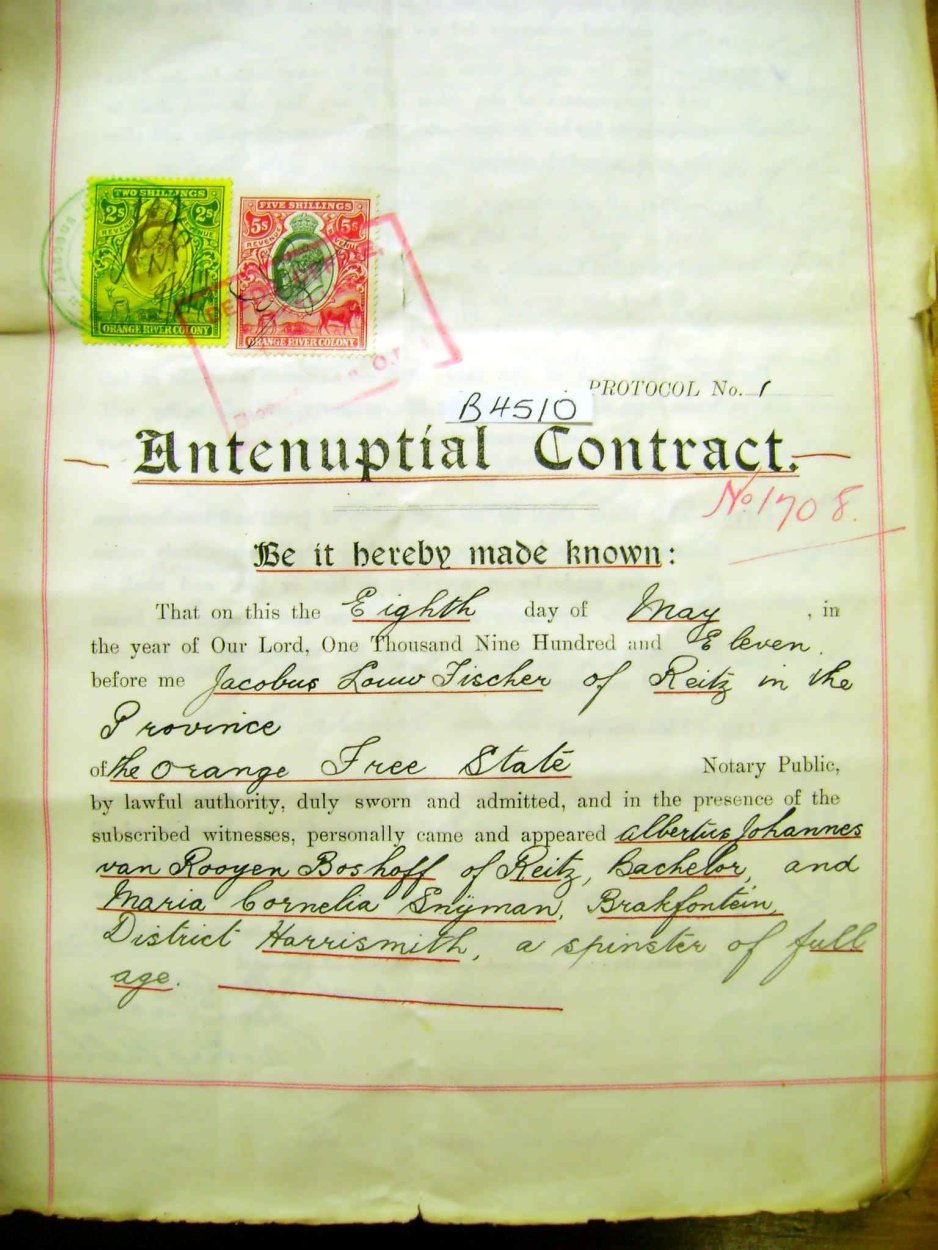 TWO SHILLINGS
2s 2s
REVENUE REVENUE
ORANGE RIVER COLONY
FIVE SHILLINGS
5s 5s
REVENUE REVENUE
ORANGE RIVER COLONY
PROTOCOL No. 1
B4510
Antenuptial Contract.
No 1708.
Be it hereby made known:
That on this the Eighth day of May, in
the year of Our Lord, One Thousand Nine Hundred and Eleven.
before me Jacobus Louw Fischer of Reitz in the
Province
of the Orange Free State Notary Public,
by lawful authority, duly sworn and admitted, and in the presence of the
subscribed witnesses, personally came and appeared Albertus Johannes
van Rooyen Boshoff of Reitz, Bachelor, and
Maria Cornelia Snÿman, Brakfontein,
District Harrismith, a spinster of full
age.